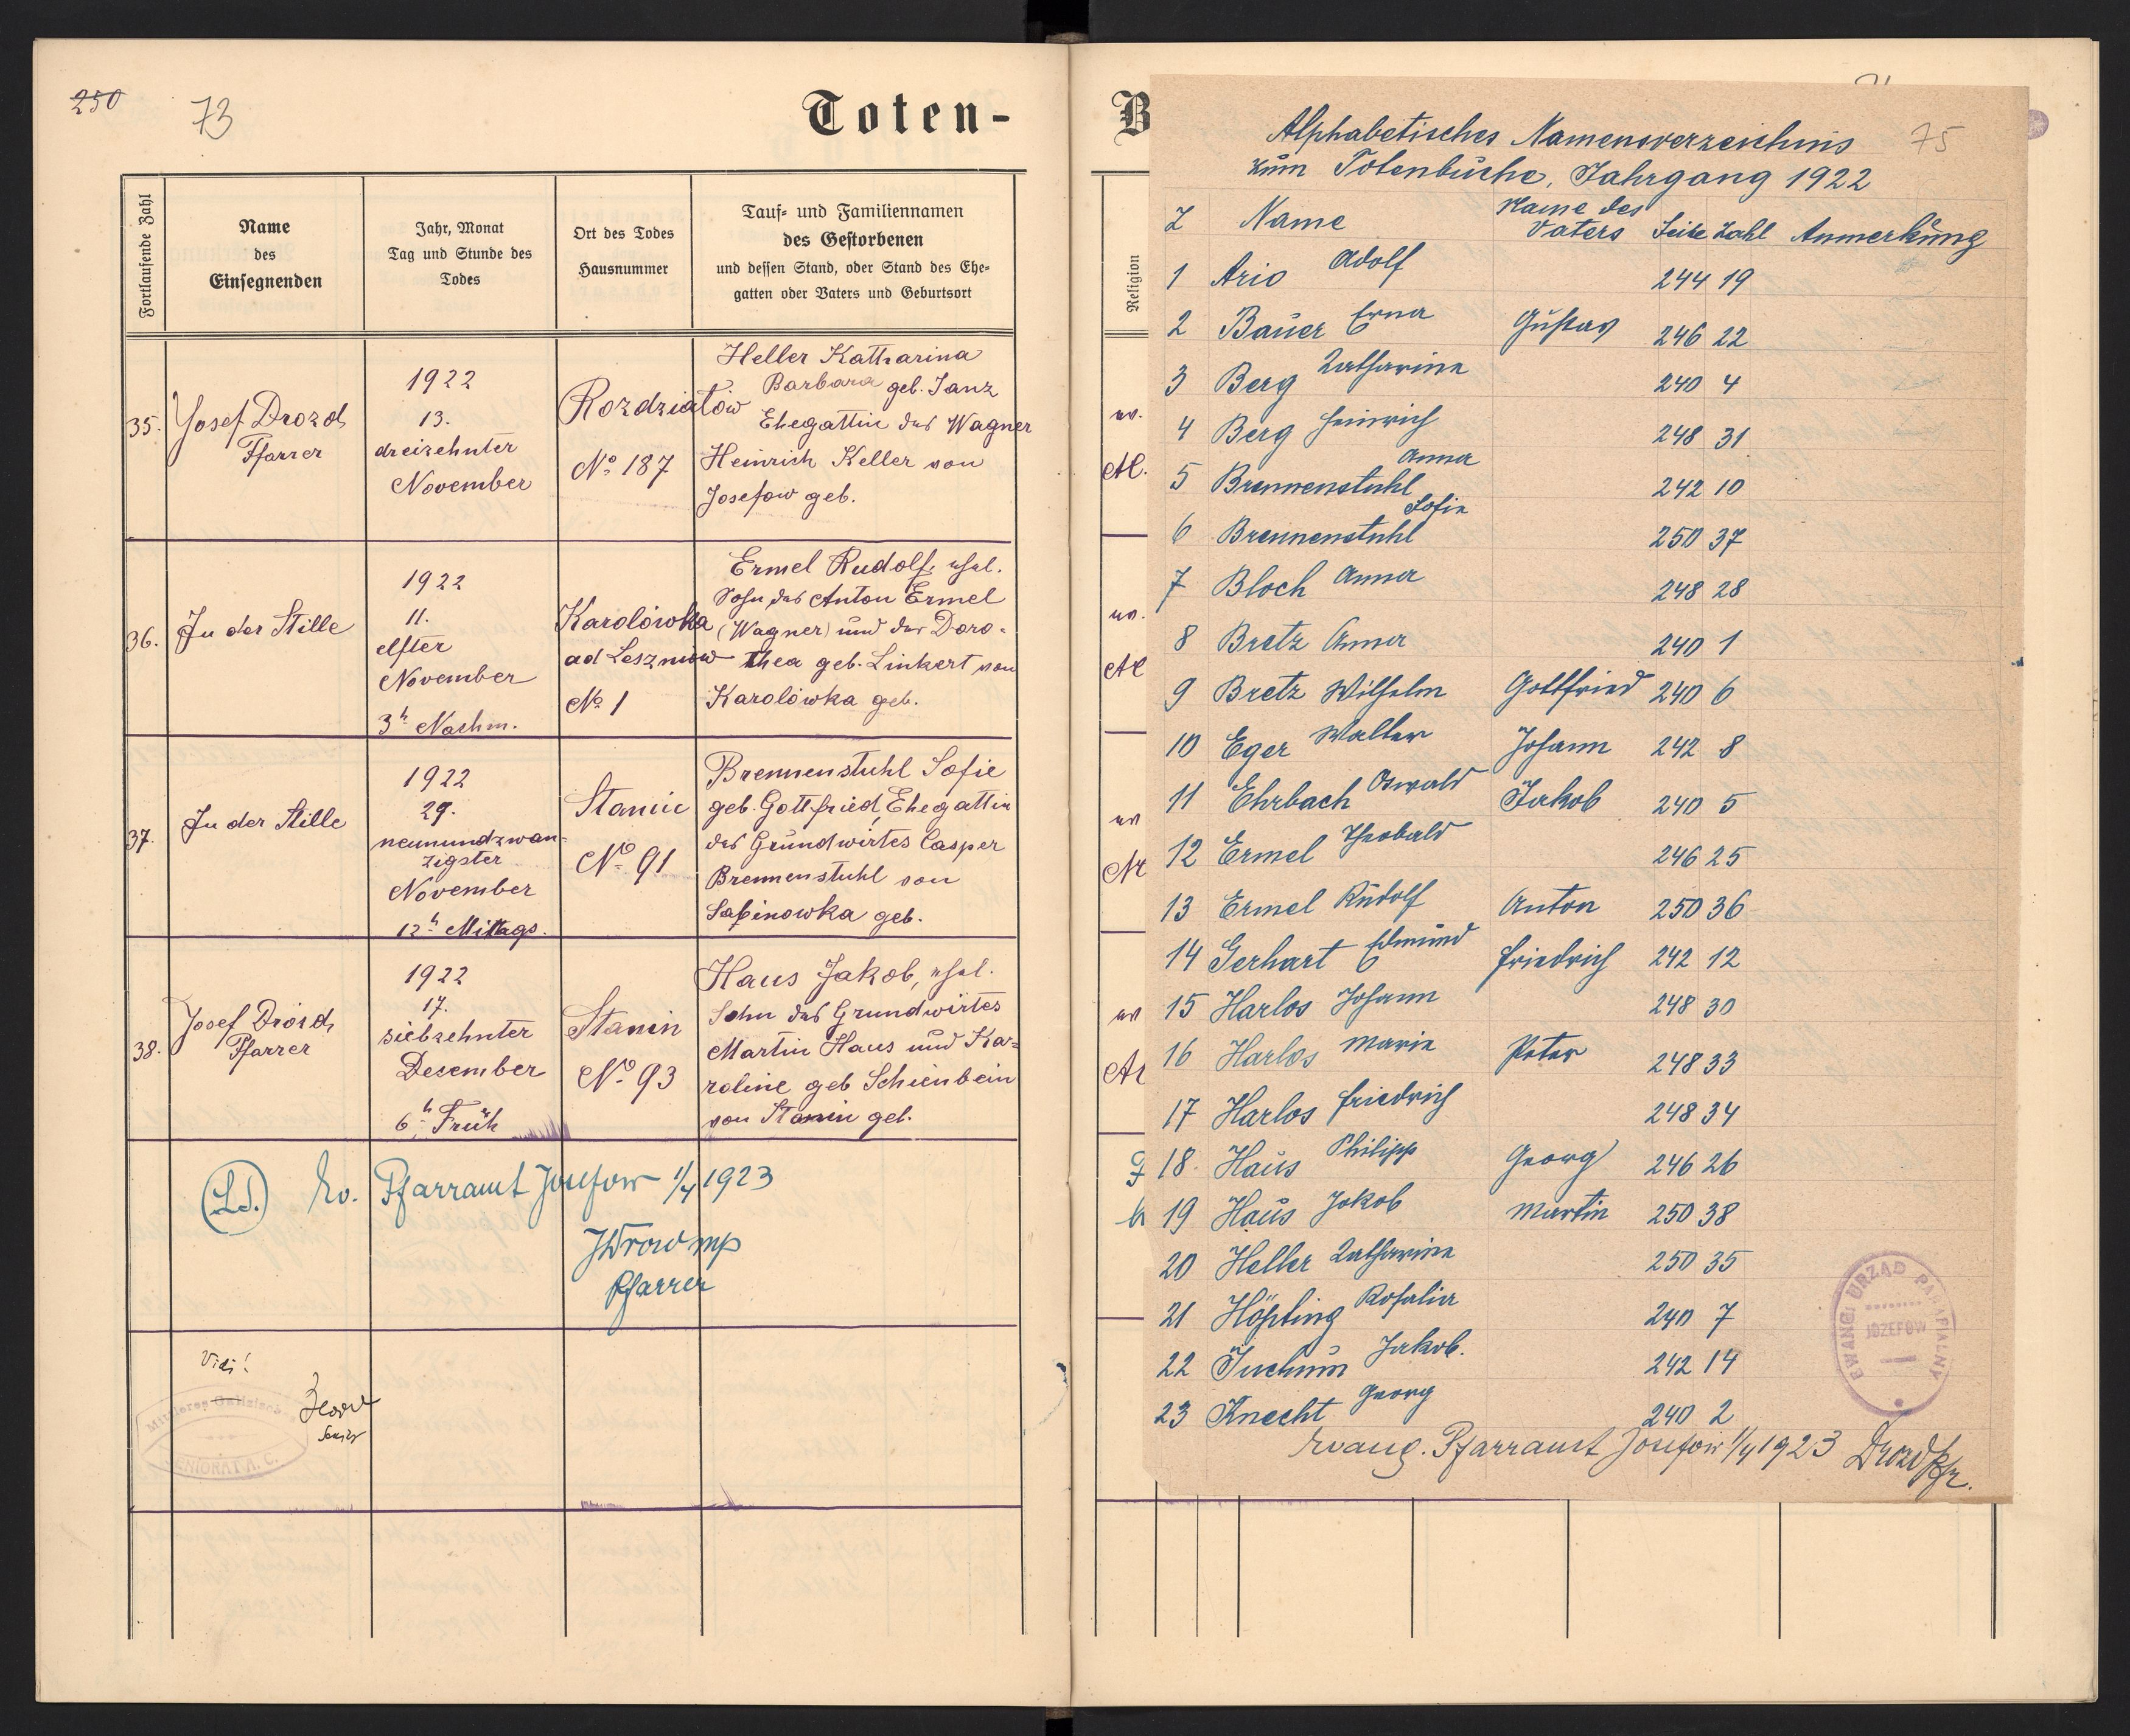 250
73
Toten-
Fortlaufende Zahl
Name
des
Einsegnenden
Jahr, Monat
Tag und Stunde des
Todes
Ort des Todes
Hausnummer
Tauf- und Familiennamen
des Gestorbenen
und dessen Stand, oder Stand des Ehe-
gatten oder Vaters und Geburtsort
35.
Josef Drozd
Pfarrer
1922
13.
dreizehnter
November
Rozdziałów
No 187
Heller Katharina
Barbara geb. Janz
Ehegattin des Wagner
Heinrich Heller von
Josefow geb.
36.
In der Stille
1922
11.
elfter
November
3h Nachm.
Karolówka
ad Lesznow
No 1
Ermel Rudolf, ehel.
Sohn des Anton Ermel
(Wagner) und der Doro-
thea geb. Linkert von
Karolówka geb.
37.
In der Stille
1922
29.
neunundzwan-
zigster
November
12h Mittags.
Stanin
No 91
Brennenstuhl Sofie
geb. Gottfried, Ehegattin
des Grundwirtes Casper
Brennenstuhl von
Sabinowka geb.
38.
Josef Drozd,
Pfarrer
1922
17.
siebzehnter
Dezember
6h Früh
Stanin
No 93
Haus Jakob, ehel.
Sohn des Grundwirtes
Martin Haus und Ka-
roline geb Schienbein
von Stanin geb.
(L.S.) Ev. Pfarramt Josefow 1/4 1923
JDrozd mp
Pfarrer
Vidi!
Senior
Mittleres Galizisch
SENIORAT A. C.
B
Religion
ev.
AC.
Alphabetisches Namensverzeichnis
75
zum Totenbuche, Jahrgang 1922
Z Name Name des Vaters Seite Zahl Anmerkung
1 Ario Adolf 244 19
2 Bauer Erna Gustav 246 22
3 Berg Katharina 240 4
4 Berg Heinrich 248 31
5 Brennenstuhl Anna 242 10
6 Brennenstuhl Sofie 250 37
7 Bloch Anna 248 28
8 Bretz Anna 240 1
9 Bretz Wilhelm Gottfried 240 6
10 Eger Walter Johann 242 8
11 Ehrbach Oswald Jakob 240 5
12 Ermel Theobald 246 25
13 Ermel Rudolf Anton 250 36
14 Gerhart Edmund Friedrich 242 12
15 Harlos Johann 248 30
16 Harlos Marie Peter 248 33
17 Harlos Friedrich 248 34
18. Haus Philipp Georg 246 26
19 Haus Jakob Martin 250 38
20 Heller Katharina 250 35
21 Höpting Rosalia 240 7
22 Juchum Jakob. 242 14
23 Knecht Georg 240 2
Evang. Pfarramt Josefow 1/4 1923 Drozd Pfr.
EWANG. URZĄD PARAFIALNY
JÓZEFÓW